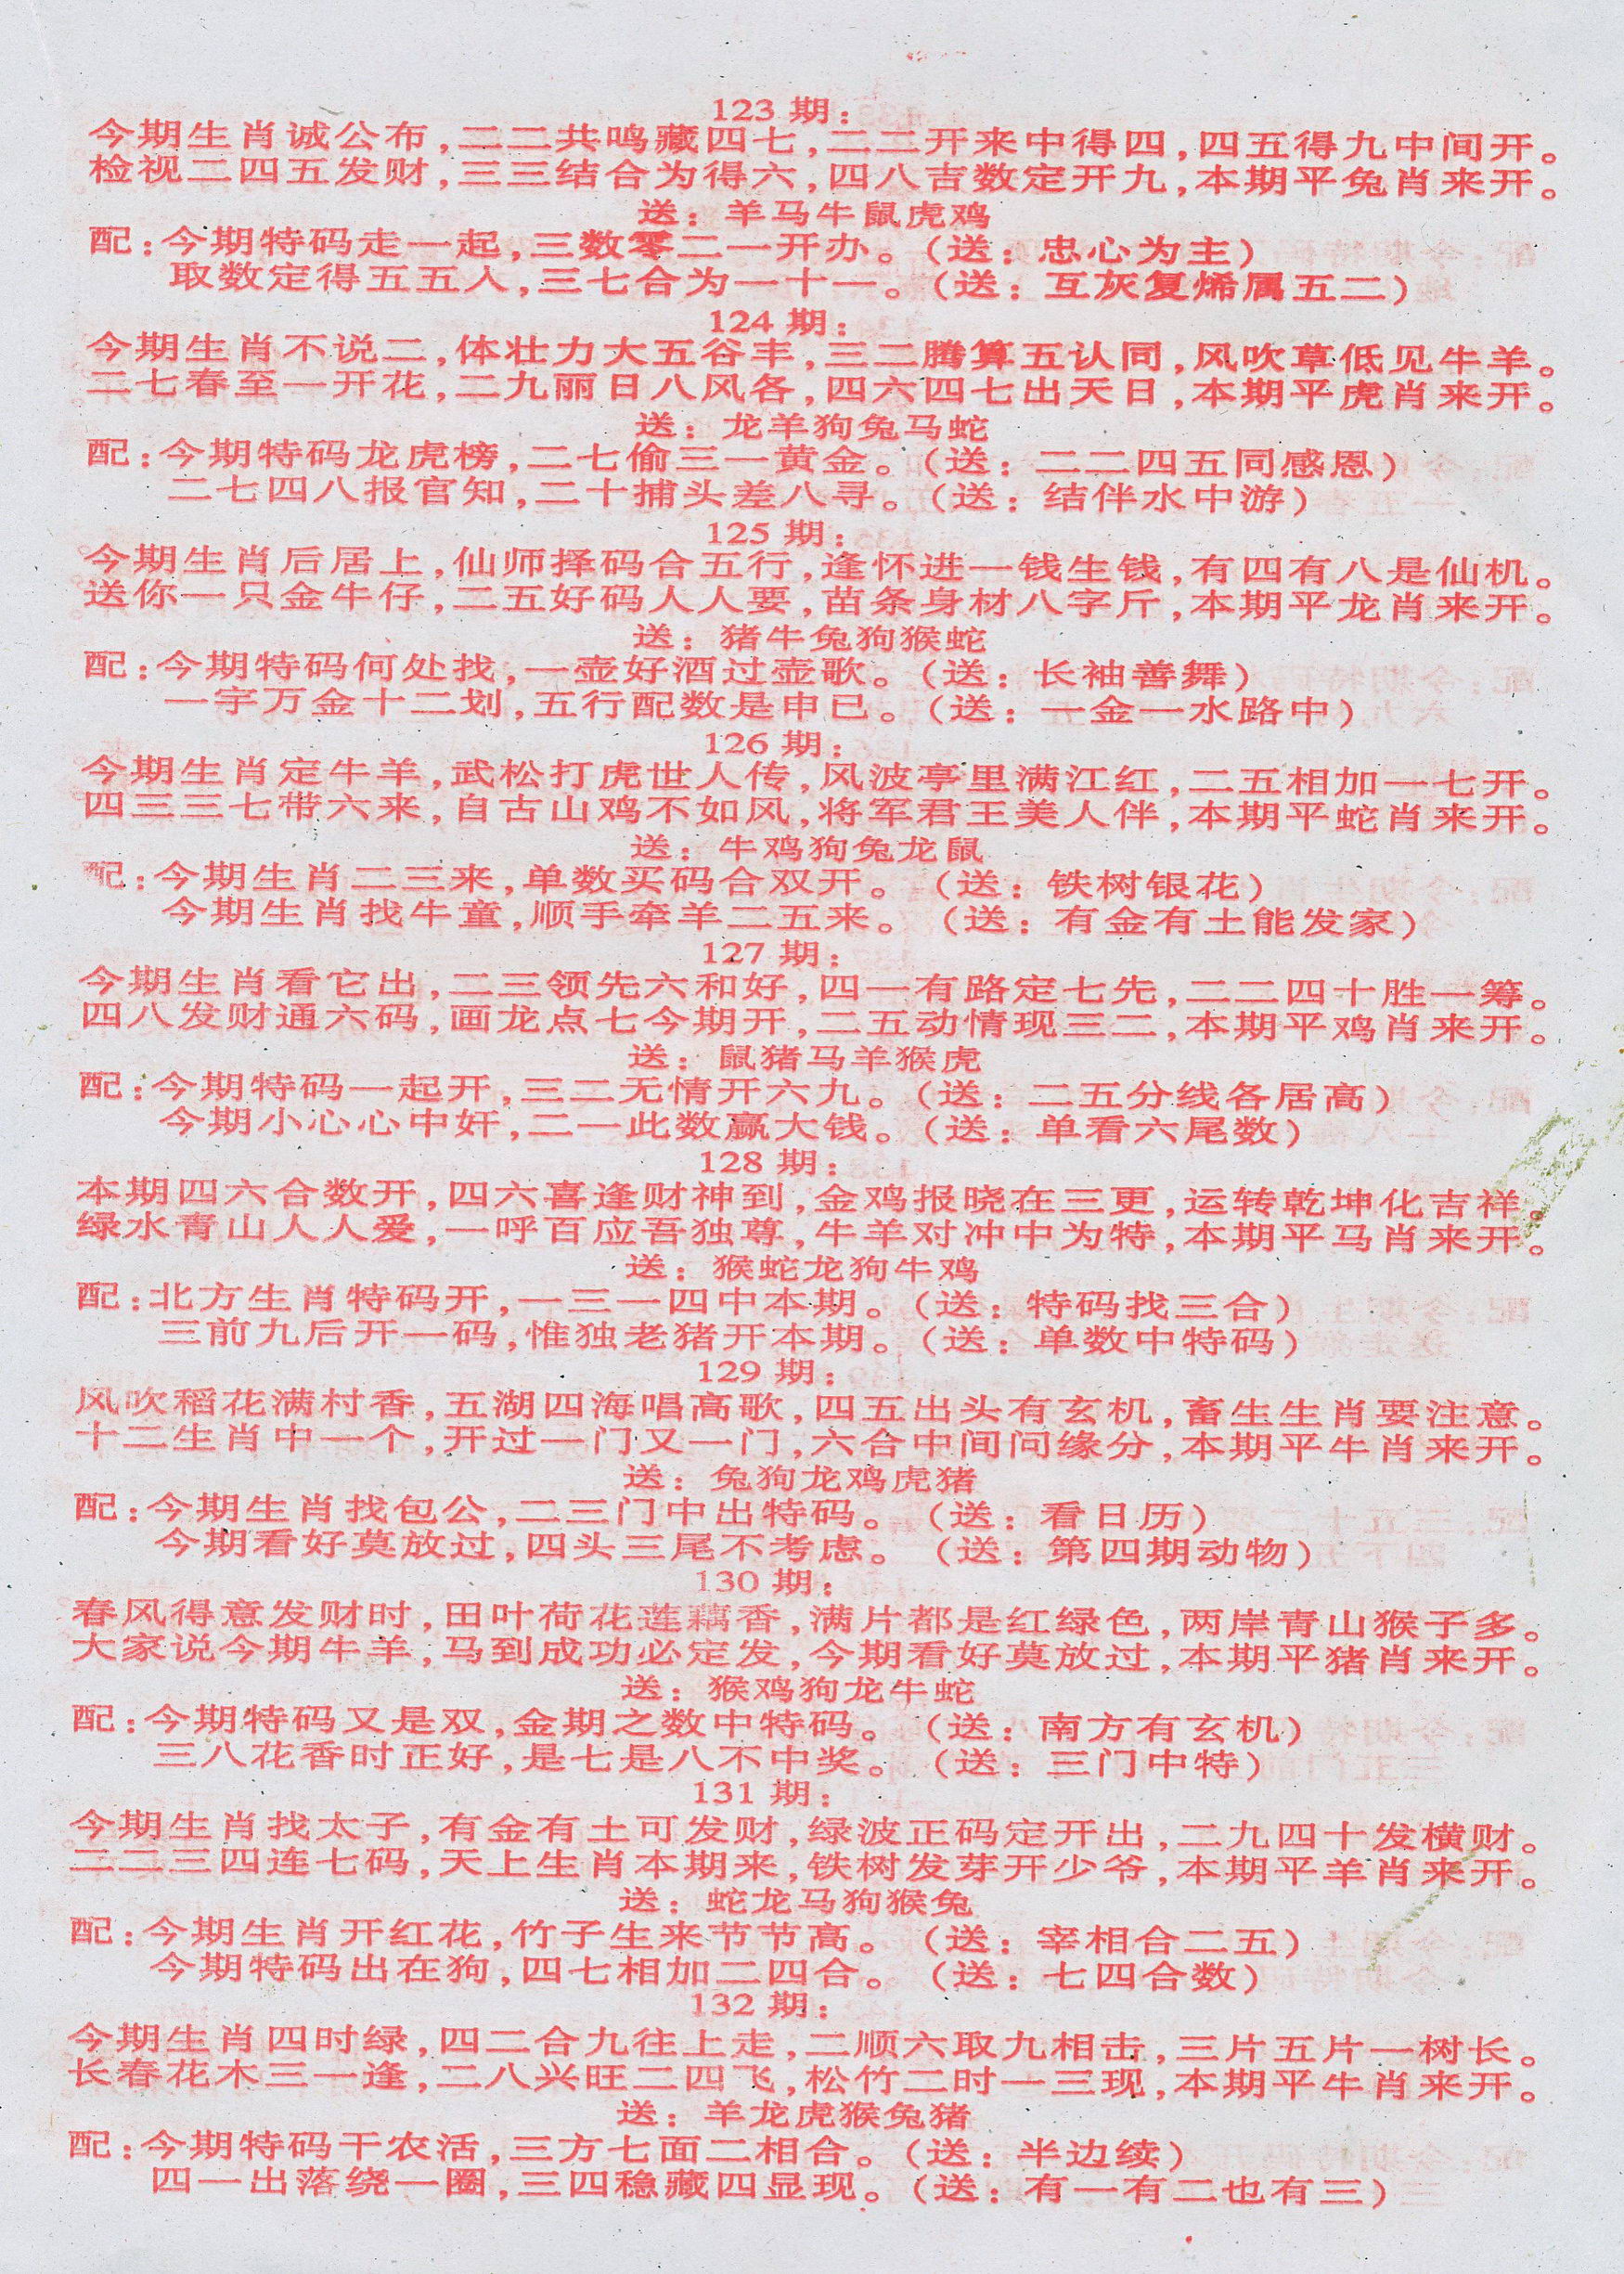 123 期：
今期生肖诚公布,二二共鸣藏四七,二二开来中得四,四五得九中间开。
检视二四五发财,三三结合为得六,四八吉数定开九,本期平兔肖来开。
送：羊马牛鼠虎鸡
配:今期特码走一起,三数零二一开办。(送：忠心为主)
取数定得五五人,三七合为一十一。(送：互灰复烯属五二)
124 期：
今期生肖不说二,体壮力大五谷丰,三二腾算五认同,风吹草低见牛羊。
二七春至一开花,二九丽日八风各,四六四七出天日,本期平虎肖来开。
送：龙羊狗兔马蛇
配:今期特码龙虎榜,二七偷三一黄金。(送：二二四五同感恩)
二七四八报官知,二十捕头差八寻。(送：结伴水中游)
125 期：
今期生肖后居上,仙师择码合五行,逢怀进一钱生钱,有四有八是仙机。
送你一只金牛仔,二五好码人人要,苗条身材八字斤,本期平龙肖来开。
送：猪牛兔狗猴蛇
配:今期特码何处找,一壶好酒过壶歌。(送：长袖善舞)
一字万金十二划,五行配数是申已。(送：一金一水路中)
126 期：
今期生肖定牛羊,武松打虎世人传,风波亭里满江红,二五相加一七开。
四三三七带六来,自古山鸡不如风,将军君王美人伴,本期平蛇肖来开。
送：牛鸡狗兔龙鼠
配:今期生肖二三来,单数买码合双开。(送：铁树银花)
今期生肖找牛童,顺手牵羊二五来。(送：有金有土能发家)
127 期：
今期生肖看它出,二三领先六和好,四一有路定七先,二二四十胜一筹。
四八发财通六码,画龙点七今期开,二五动情现三二,本期平鸡肖来开。
送：鼠猪马羊猴虎
配:今期特码一起开,三二无情开六九。(送：二五分线各居高)
今期小心心中奸,二一此数赢大钱。(送：单看六尾数)
128 期：
本期四六合数开,四六喜逢财神到,金鸡报晓在三更,运转乾坤化吉祥。
绿水青山人人爱,一呼百应吾独尊,牛羊对冲中为特,本期平马肖来开。
送：猴蛇龙狗牛鸡
配:北方生肖特码开,一三一四中本期。(送：特码找三合)
三前九后开一码,惟独老猪开本期。(送：单数中特码)
129 期：
风吹稻花满村香,五湖四海唱高歌,四五出头有玄机,畜生生肖要注意。
十二生肖中一个,开过一门又一门,六合中间问缘分,本期平牛肖来开。
送：兔狗龙鸡虎猪
配:今期生肖找包公,二三门中出特码。(送：看日历)
今期看好莫放过,四头三尾不考虑。(送：第四期动物)
130 期：
春风得意发财时,田叶荷花莲藕香,满片都是红绿色,两岸青山猴子多。
大家说今期牛羊,马到成功必定发,今期看好莫放过,本期平猪肖来开。
送：猴鸡狗龙牛蛇
配:今期特码又是双,金期之数中特码。(送：南方有玄机)
三八花香时正好,是七是八不中奖。(送：三门中特)
131 期：
今期生肖找太子,有金有土可发财,绿波正码定开出,二九四十发横财。
二二三四连七码,天上生肖本期来,铁树发芽开少爷,本期平羊肖来开。
送：蛇龙马狗猴兔
配:今期生肖开红花,竹子生来节节高。(送：宰相合二五)
今期特码出在狗,四七相加二四合。(送：七四合数)
132 期：
今期生肖四时绿,四二合九往上走,二顺六取九相击,三片五片一树长。
长春花木三一逢,二八兴旺二四飞,松竹二时一三现,本期平牛肖来开。
送：羊龙虎猴兔猪
配:今期特码干农活,三方七面二相合。(送：半边续)
四一出落绕一圈,三四稳藏四显现。(送：有一有二也有三)